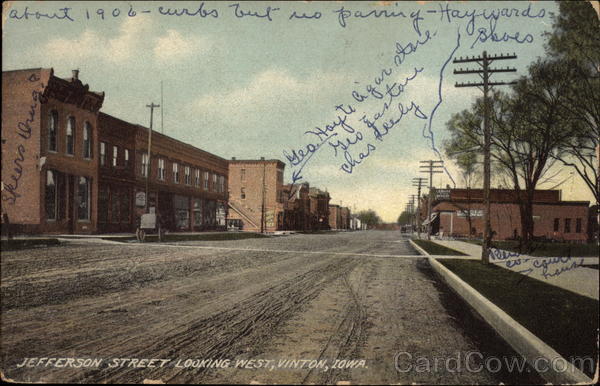 about 1906 - curbs but no paving - Haywards
Shoes
Geo Hoyt cigar store
Geo Gaston
Chas Seely
Speers Drug
co. court
house
JEFFERSON STREET LOOKING WEST, VINTON, IOWA.
CardCow.com